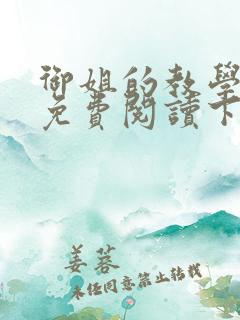 御姐的教學
免費閱讀下
姜蓉
未经同意禁止转载